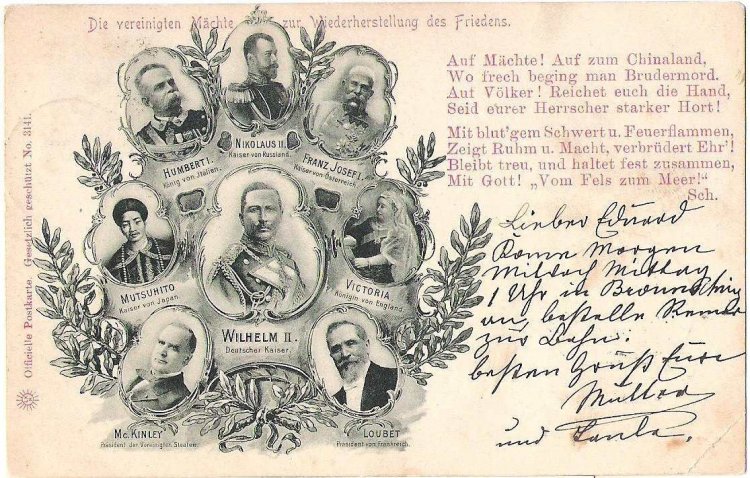 Die vereinigten Mächte zur Wiederherstellung des Friedens.
Officielle Postkarte. Gesetzlich geschützt No. 3141.
HUMBERT I.
König von Italien.
NIKOLAUS II.
Kaiser von Russland.
FRANZ JOSEF I.
Kaiser von Österreich.
MUTSUHITO
Kaiser von Japan.
WILHELM II.
Deutscher Kaiser.
VICTORIA
Königin von England.
Mc. KINLEY
Präsident der Vereinigten Staaten.
LOUBET
Präsident von Frankreich.
Auf Mächte! Auf zum Chinaland,
Wo frech beging man Brudermord.
Auf Völker! Reichet euch die Hand,
Seid eurer Herrscher starker Hort!
Mit blut'gem Schwert u. Feuerflammen,
Zeigt Ruhm u. Macht, verbrüdert Ehr'!
Bleibt treu, und haltet fest zusammen,
Mit Gott! „Vom Fels zum Meer!“
Sch.
Lieber Eduard
Komme Morgen
Mittag
1 Uhr in
an, bestelle
zur Bahn.
besten Gruß Eure
Mutter
und